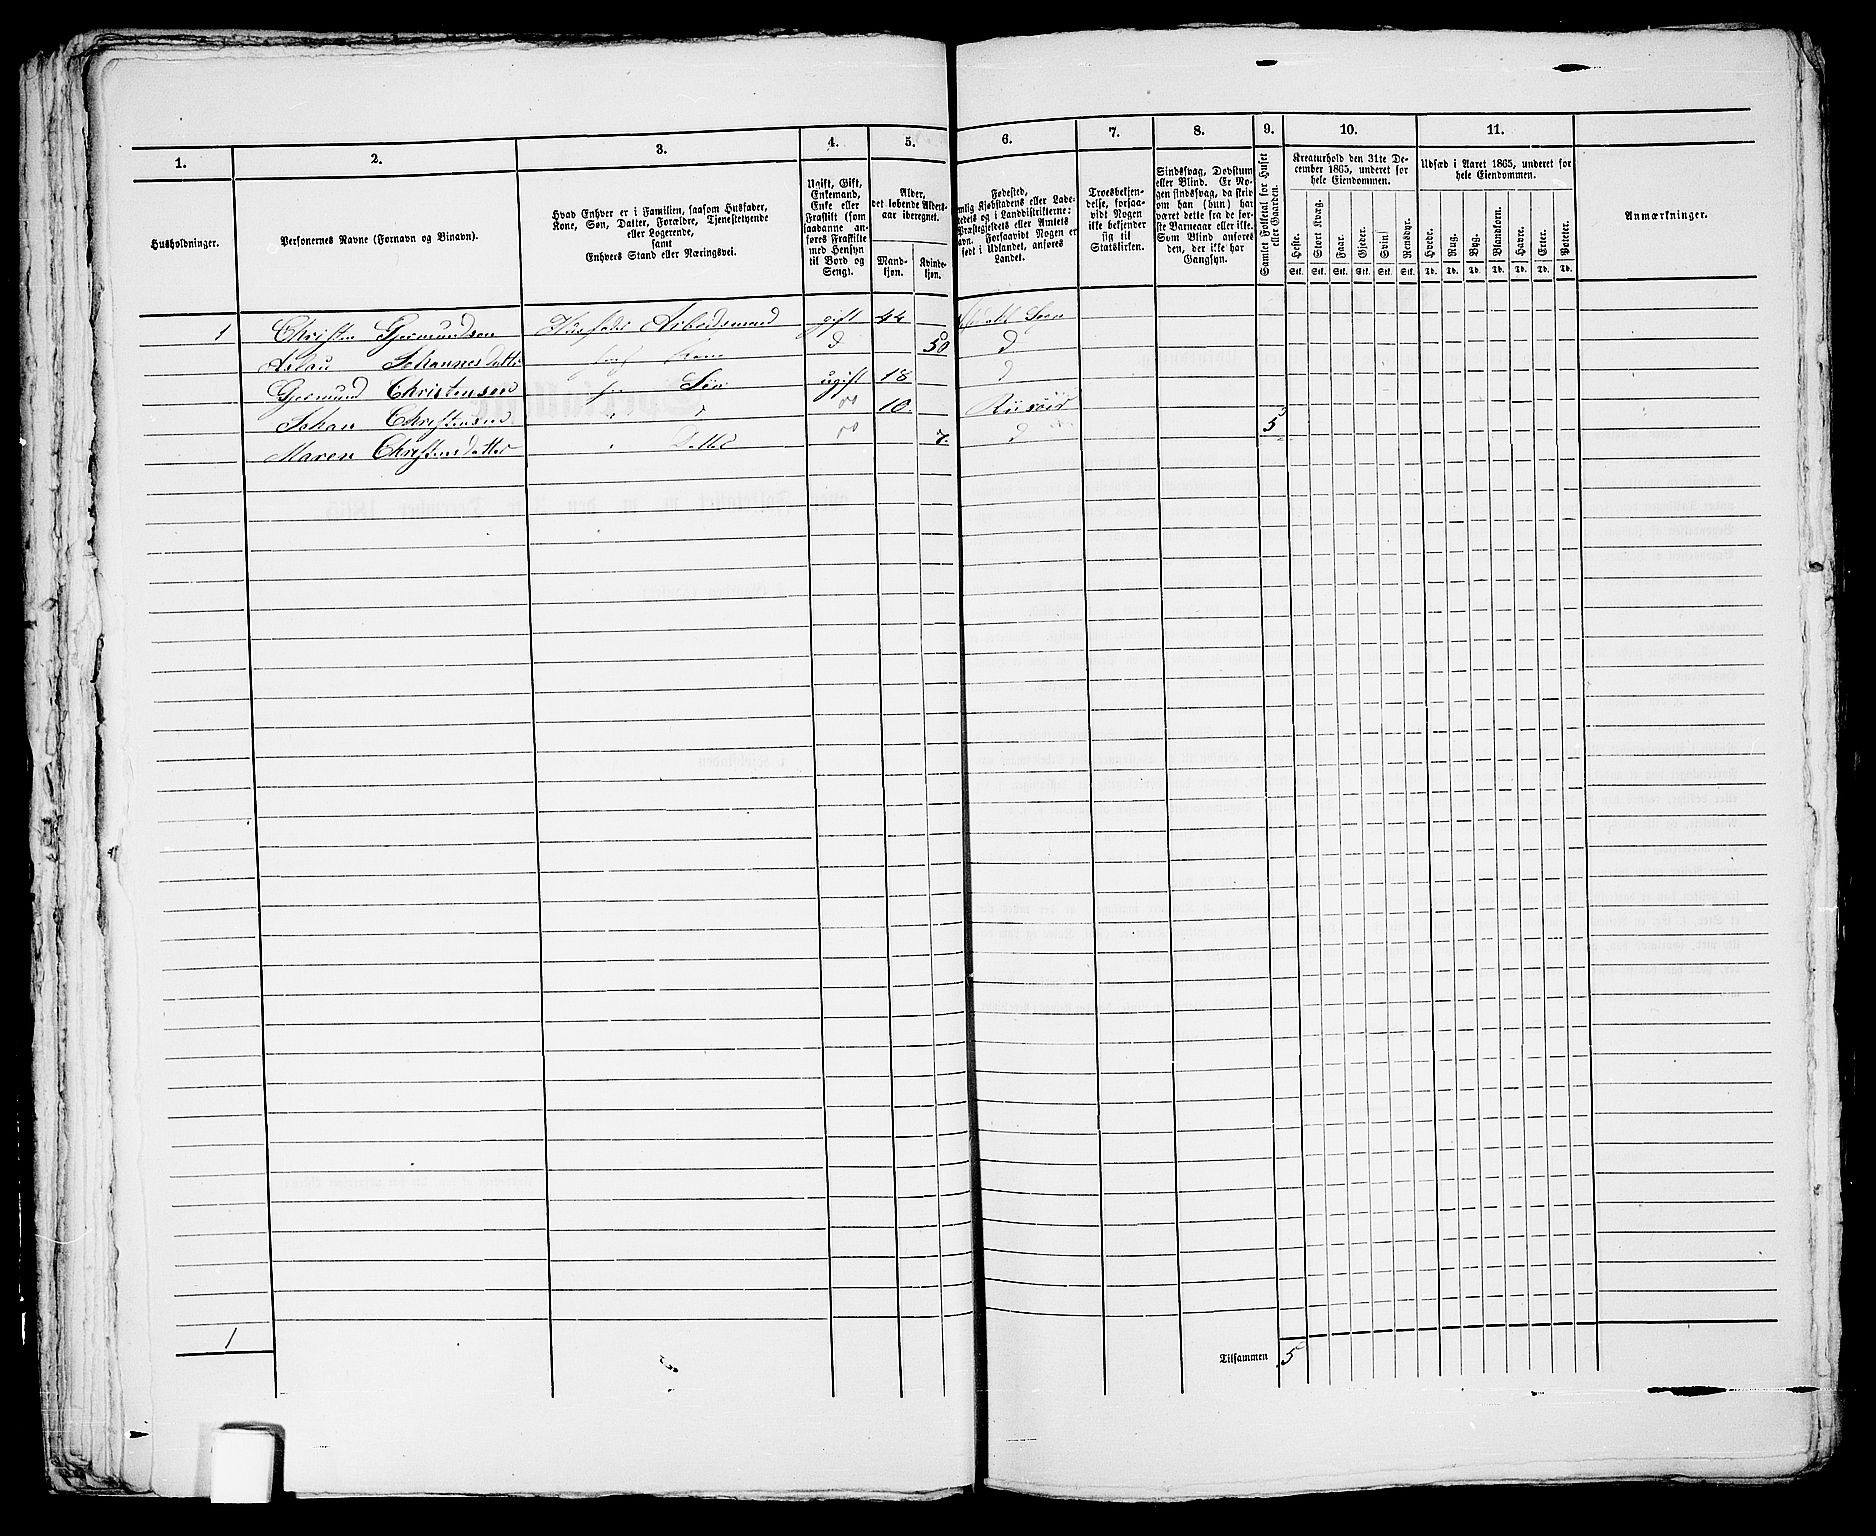 1.
2.
3.
4.
5.
6.
7.
8.
9.
10.
11.
Husholdninger.
Personernes Navne (Fornavn og Binavn).
Hvad Enhver er i Familien, saasom Husfader,
Kone, Søn, Datter, Forældre, Tjenestetyende
eller Logerende,
samt
Enhvers Stand eller Næringsvei.
Ugift, Gift,
Enkemand,
Enke eller
Fraskilt (som
saadanne an-
føres Fraskilte
med Hensyn
til Bord og
Seng).
Alder,
det løbende Alders-
aar iberegnet.
Mand-
kjøn.
Kvinde-
kjøn.
Fødested,
Forsaavidt Nogen er
født i Udlandet, anføres
Landet.
Troesbekjen-
delse, forsaa-
vidt Nogen
ikke bekjender
sig til
Statskirken.
Sindssvag, Døvstum
eller Blind. Er No-
gen sindssvag, da skri-
ves om han (hun) har
været dette fra de før-
ste Barneaar eller ikke.
Som Blind anføres
den, der ikke har
Gangsyn.
Samlet Folketal for Huset
eller Gaarden.
Kreaturhold den 31te De-
cember 1865, underet for
hele Eiendommen.
Heste.
Stort Kvæg.
Faar.
Gjeder.
Svin.
Rensdyr.
Stk. Stk. Stk. Stk. Stk. Stk.
Udsæd i Aaret 1865, underet for
hele Eiendommen.
Hvede.
Rug.
Byg.
Blandkorn.
Havre.
Erter.
Poteter.
Td. Td. Td. Td. Td. Td. Td.
Anmærkninger.
1 Christen Gjermundsen Husfader Arbeidsmand gift 44 Sogn
Johannesdatter Kone d 50 d
Gjermund Christensen Søn ugift 18 d
Johan Christensen 10
Maren Christensdatter Datter 7 d 5
1
Tilsammen 5